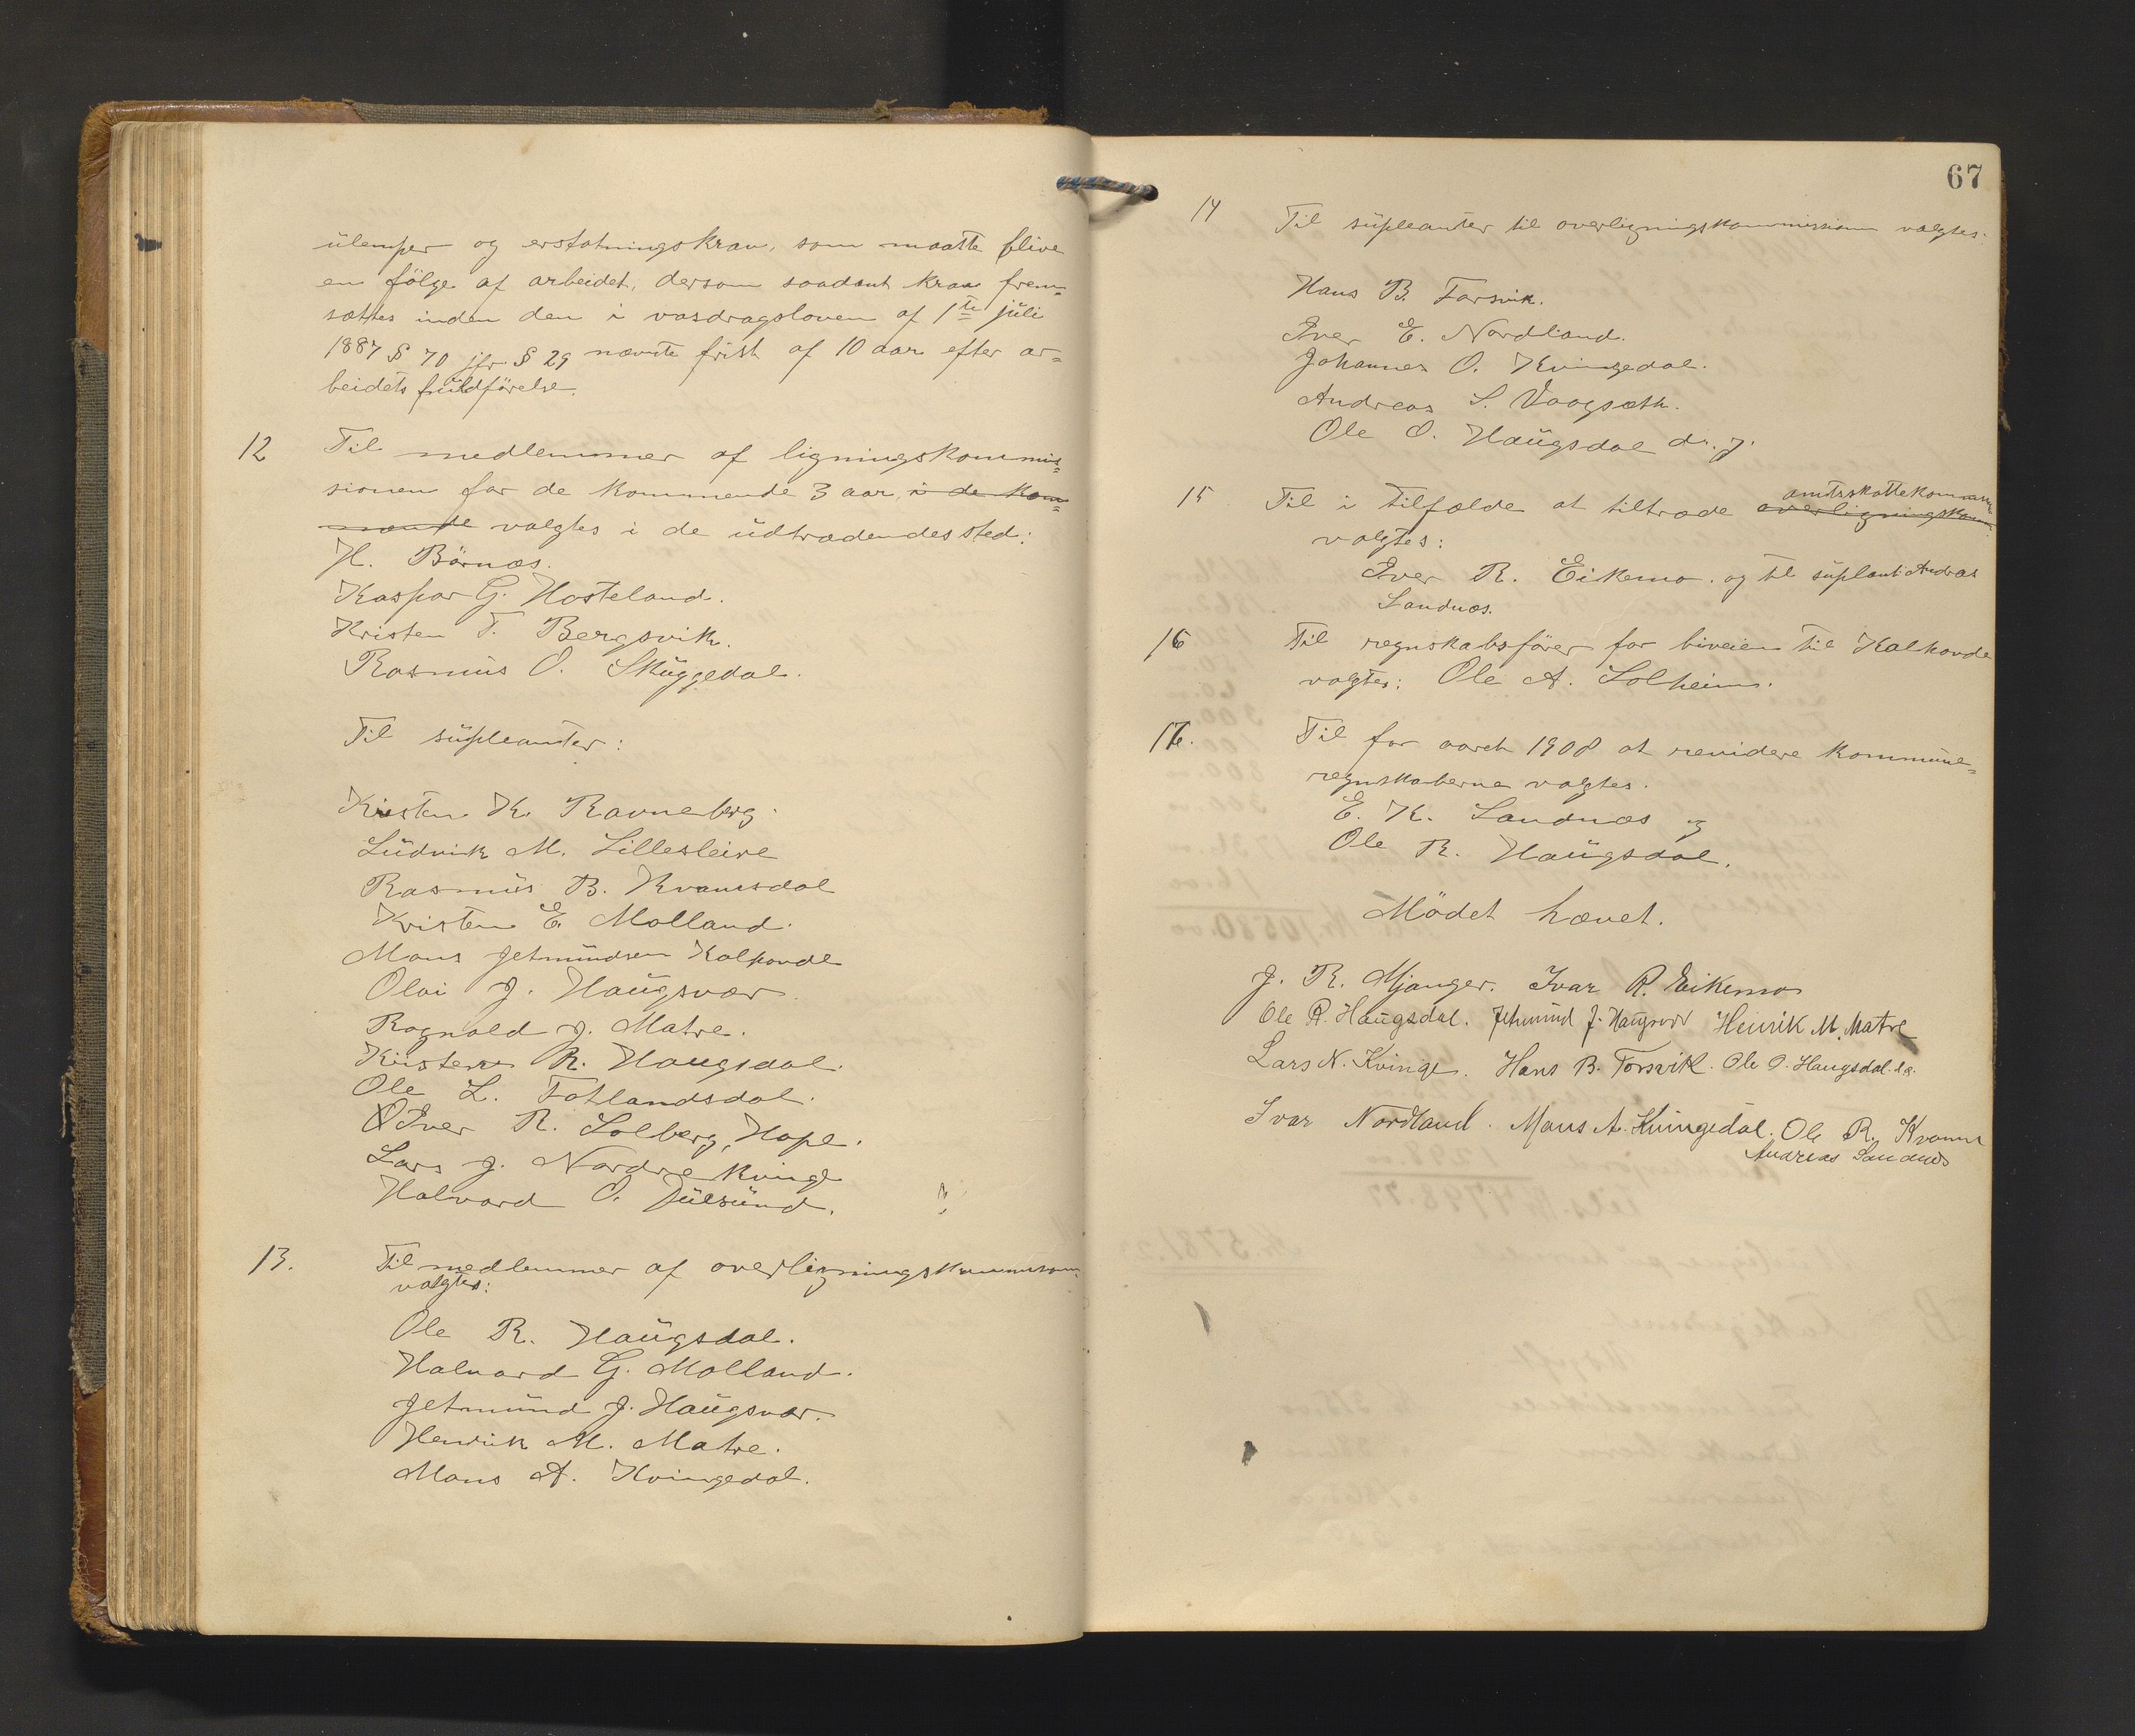 ulemper og erstatningskrav, som maatte blive
en følge af arbeidet, dersom saadant krav frem=
sættes inden den i vasdragsloven af 1ste juli
1887 § 70 jfr § 29 nævnte frist af 10 aar efter ar=
beidets fuldførelse.
12 Til medlemmer af ligningskommis=
sionen for de kommende 3 aar, i de kom=
mende valgtes i de udtrædendes sted:
H. Börnæs.
Kaspar G. Hosteland.
Kristen T. Bergsvik.
Rasmus O. Skuggedal.
Til supleanter:
Kristen K. Ravneberg.
Ludvik M. Lillesleire
Rasmus B. Kvamsdal
Kristen E. Molland.
Mans Jetmundsen Kalhovde
Olai J. Haugsvær
Ragnald J. Matre.
Kristen R. Haugsdal.
Ole L. Fotlandsdal.
Iver R. Solberg, Hope.
Lars J. Nordre Kvinge
Halvard O. Dulsund.
13. Til medlemmer af overligningskommisionen
valgtes:
Ole R. Haugsdal.
Halvard G. Molland.
Jetmund J. Haugsvær.
Henrik M. Matre.
Mans A. Kvingedal.
67
14 Til supleanter til overligningskommissionen valgtes:
Hans B. Forsvik.
Iver E. Nordland.
Johannes O. Kvingedal.
Andreas S. Vaagsæth.
Ole O. Haugsdal d. y.
amtsskattekommis.
15 Til i tilfælde at tiltræde overligningskom.
valgtes:
Iver R. Eikemo. og til suplant Andreas
Sandnæs.
16 Til regnskabsfører for biveien til Kalhovde
valgtes: Ole A. Solheim.
17. Til for aaret 1908 at revidere kommune=
regnskaberne valgtes.
E. K. Sandnæs og
Ole R. Haugsdal.
Mödet hævet.
J. R. Mjanger. Ivar R. Eikemo
Ole R. Haugsdal. Jetmund J. Haugsvær Henrik M. Matre
Lars N. Kvinge. Hans B. Forsvik. Ole O. Haugsdal. d. e.
Ivar Nordland. Mans A. Kvingedal. Ole R. Kvamme
Andreas Sandnes